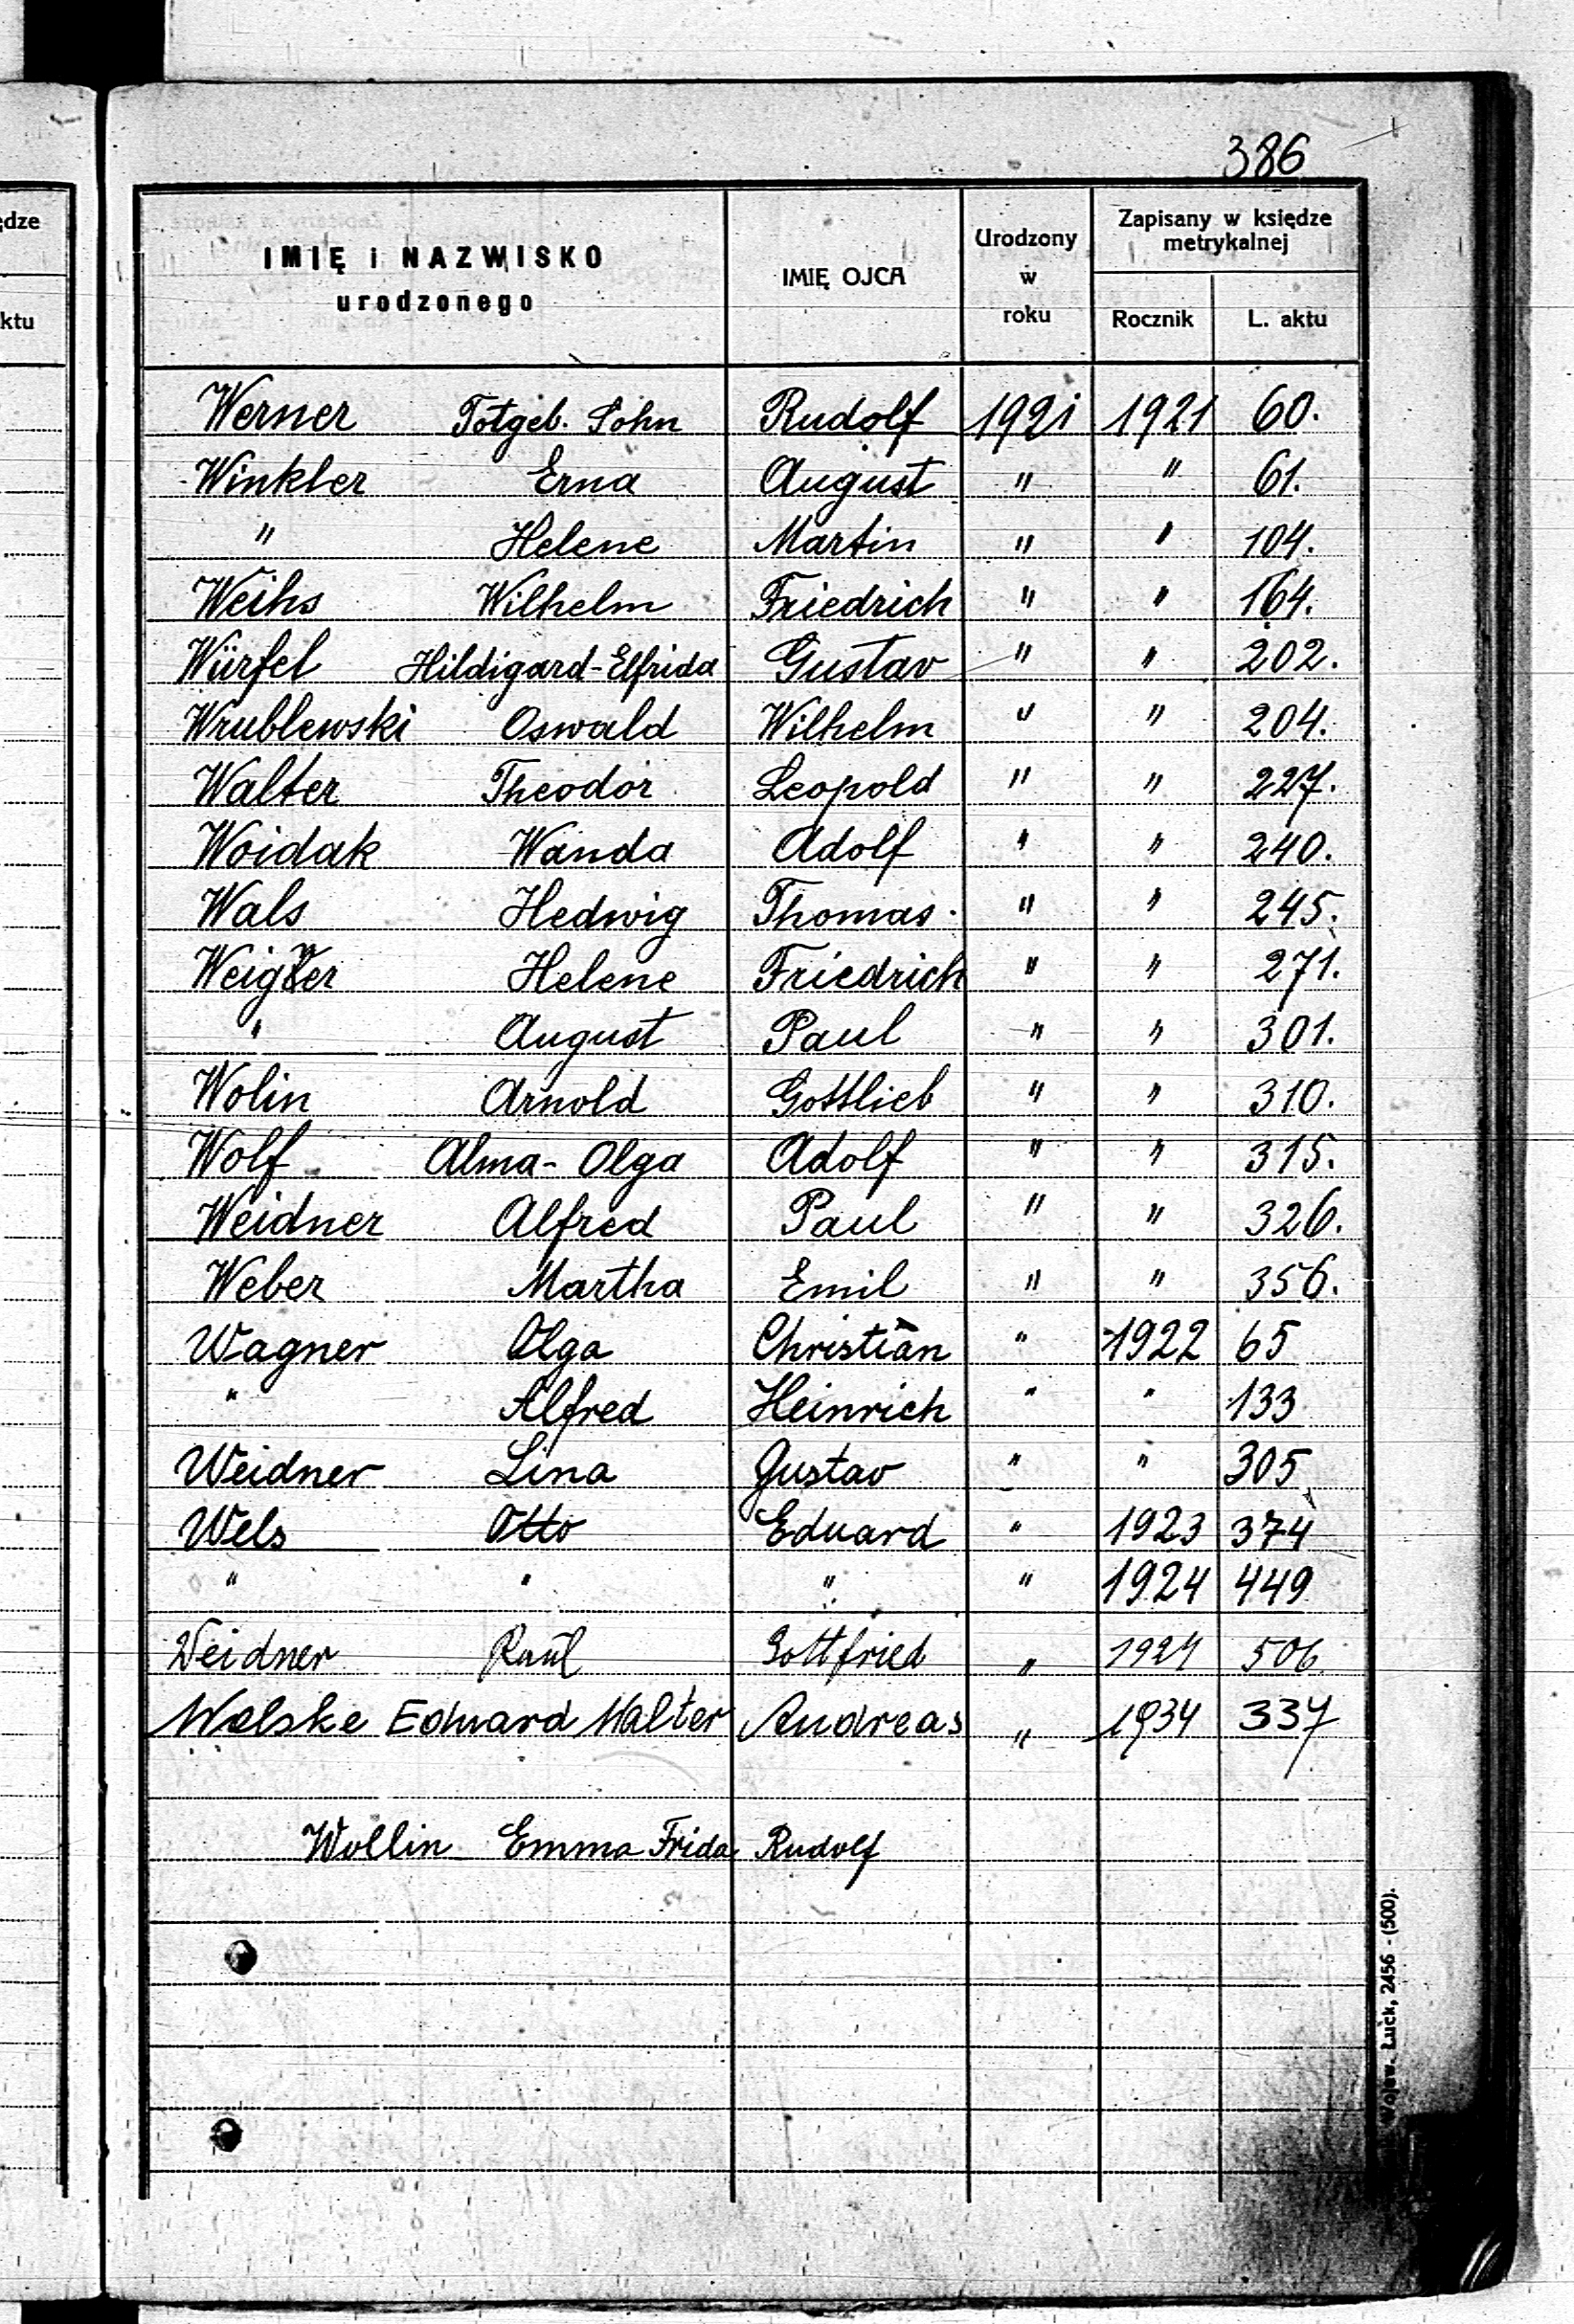 386
ędze
ktu
IMIĘ i NAZWISKO urodzonego IMIĘ OJCA Urodzony w roku Zapisany w księdze metrykalnej
Rocznik L. aktu
Werner Totgeb. Sohn Rudolf 1921 1921 60.
Winkler Erna August " " 61.
" Helene Martin " " 104.
Weihs Wilhelm Friedrich " " 164.
Würfel Hildigard-Elfrida Gustav " " 202.
Wrublewski Oswald Wilhelm " " 204.
Walter Theodor Leopold " " 227.
Woidak Wanda Adolf " " 240.
Wals Hedwig Thomas. " " 245.
Helene Friedrich " " 271.
" August Paul " " 301.
Wolin Arnold Gottlieb " " 310.
Wolf Alma-Olga Adolf " " 315.
Weidner Alfred Paul " " 326.
Weber Martha Emil " " 356.
Wagner Olga Christian " 1922 65
" Alfred Heinrich " " 133
Weidner Lina Gustav " " 305
Wels Otto Eduard " 1923 374
" " " " 1924 449
Weidner Gottfried " 1924 506
Welske Eduard Walter Andreas " 1934 337
Wollin Emma Frida Rudolf
Wojew. Łuck, 2456 - (500).